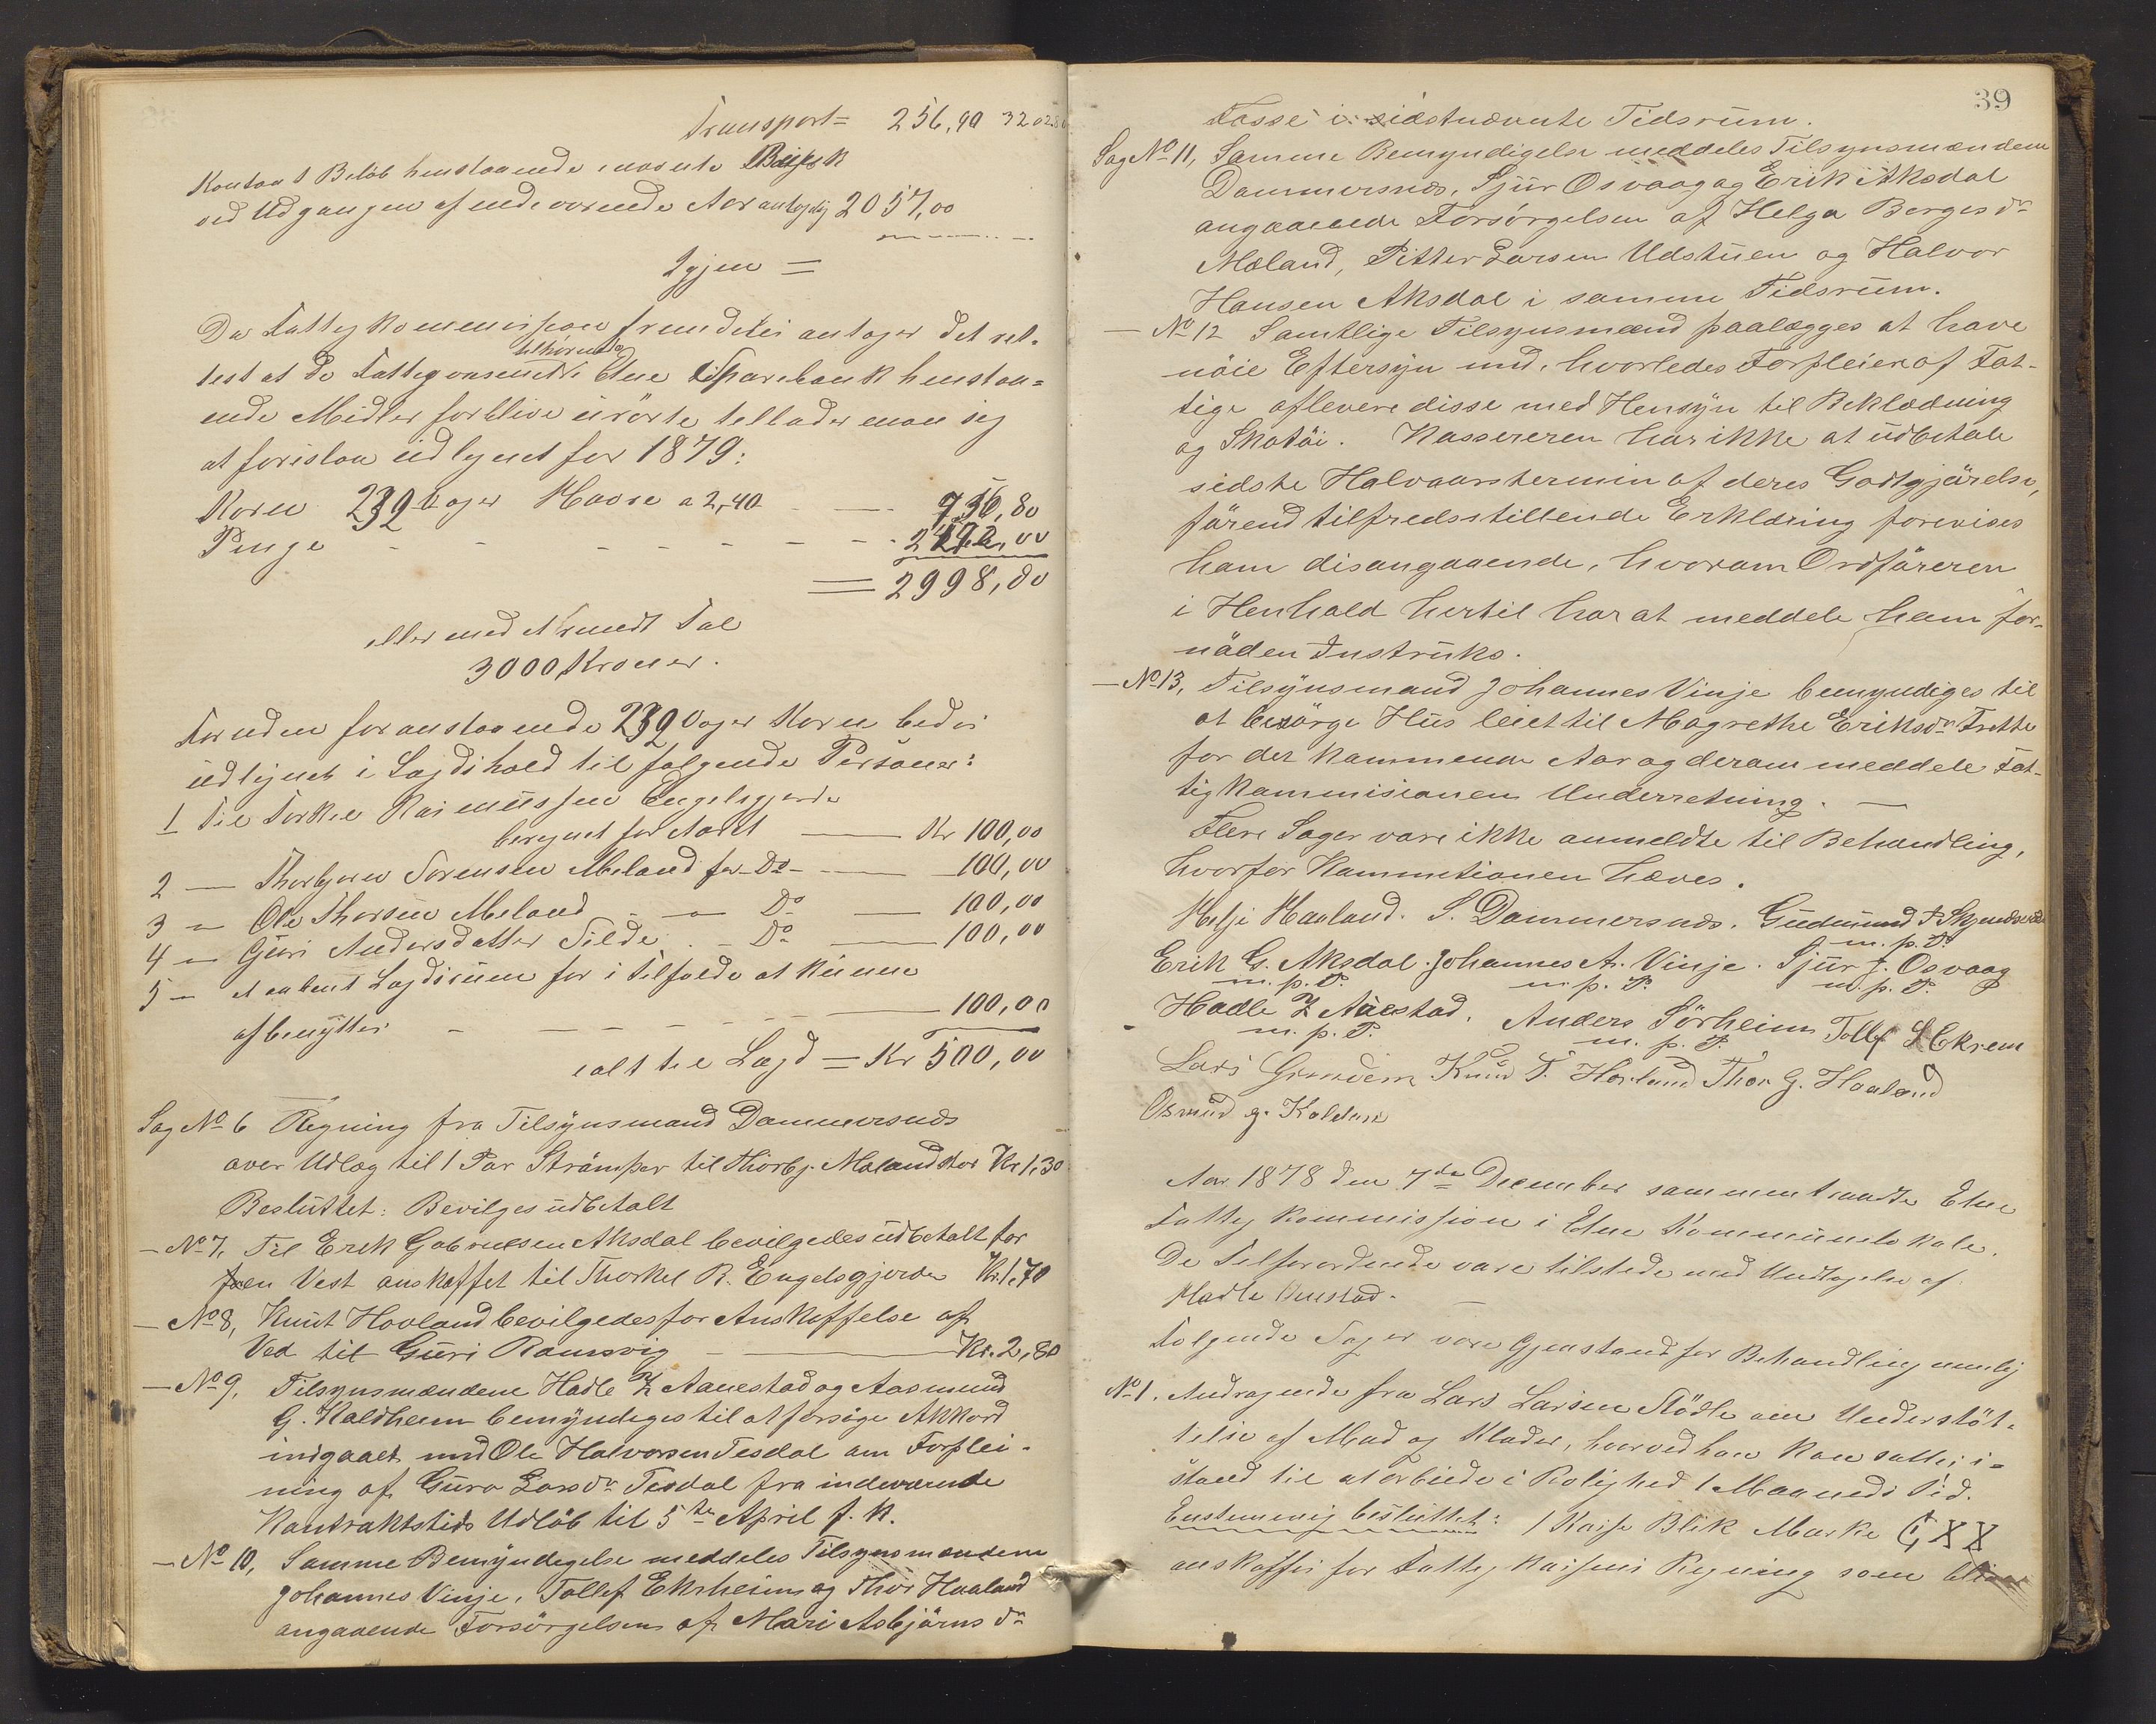 Transport = 256,90 3202,80
Kontant Beløb henstaaende i nævnte Bank
ved Udgangen af indeværende Aar antagelig 2057,00
Igjen =
Da Fattigkommissionen fremdeles antager det ret-
test at de Fattigvæsenet tilhørende i Etne Sparebank henstaa-
ende Midler forblive urørte tillader man sig
at foreslaa udlignet for 1879:
Korn 232 Voger Havre a 2,40 736,80
Penge 2,00
= 2998,80
eller med et rundt Tal
3000 Kroner.
Foruden foranstaaende 232 Voger Korn bedes
udlignet i Lægdshold til følgende Personer:
1 Til Torkel Rasmussen Engelsgjerde
beregnet for Aaret Kr 100,00
2 — Thorbjørn Sørensen Meland for Do 100,00
3 — Ole Thorsen Meland — Do 100,00
4 — Guri Andersdatter Silde — Do 100,00
5 — et aabent Lægdsrum for i Tilfælde at kunne
afbenyttes 100,00
ialt til Lægd = Kr 500,00
Sag No 6 Regning fra Tilsynsmand Dammersnæs
over Udlæg til 1 Par Strømper til Thorbj. Mæland stor Kr 1,30
Besluttet: Bevilges udbetalt
— No 7, Til Erik Gabrielsen Aksdal bevilgedes udbetalt for
en Vest anskaffet til Thorkel R. Engelsgjerde Kr. 1,70
— No 8, Knut Hovland bevilgedes for Anskaffelse af
Ved til Guri Ramsvig Kr. 2,80
— No 9, Tilsynsmændene Hadle T Aanestad og Aasmund
G. Kaldheim bemyndiges til at forsøge Akkord
indgaaet med Ole Halvorsen Tesdal om Forplei-
ning af Guro Larsdr Tesdal fra indeværende
Kontraktstids Udløb til 5te April f. k.
— No 10, Samme Bemyndigelse meddeles Tilsynsmændene
Johannes Vinje, Tollef Ekrheim og Thor Haaland
angaaende Forsørgelsen af Mari Asbjørnsdr
39
Fosse i sidstnævnte Tidsrum.
Sag No 11, Samme Bemyndigelse meddeles Tilsynsmændene
Dammersnæs, Sjur Osvaag og Erik Aksdal
angaaende Forsørgelsen af Helga Bergesdr
Mæland, Pitter Larsen Udstuen og Halvor
Hansen Aksdal i samme Tidsrum.
— No 12 Samtlige Tilsynsmænd paalægges at have
nøie Eftersyn med, hvorledes Forpleiere af Fat-
tige aflevere disse med Hensyn til Beklædning
og Skotøi. Kassereren har ikke at udbetale
sidste Halvaarstermin af deres Godtgjørelse,
førend tilfredsstillende Erklæring forevises
ham disangaaende, hvorom Ordføreren
i Henhold hertil har at meddele ham for-
nøden Instruks.
— No 13, Tilsynsmand Johannes Vinje bemyndiges til
at besørge Hus leiet til Magrethe Eriksdr Frette
for det kommende Aar og derom meddele Fat-
tigkommisionen Underretning. —
Flere Sager vare ikke anmeldte til Behandling,
hvorfor Kommitionen hæves.
Helje Haaland. S. Dammersnæs. Gudmund
m. p. P.
Erik G. Aksdal. Johannes A. Vinje. Sjur J. Osvaag
m. p. P. m. p. P. m. p. P.
Hadle T Aanestad. Anders Sørheim Tollef S Ekrem
m. p. P. m. p. P.
Lars Grindem Knud T. Hovland Thor G. Haaland
Osmund G. Kaldem
Aar 1878 den 7de December sammentraadte Etne
Fattigkommission i Etne Kommunelokale.
De Tilforordnede vare tilstede med Undtagelse af
Hadle Anestad. —
Følgende Sager vare Gjenstand for Behandling nemlig
No 1. Andragende fra Lars Larsen Stødle om Understøt-
telse af Mad og Klæder, hvorved han kan sættes i-
stand til at arbeide i Rolighed 1 Maaneds Tid.
Enstemmig besluttet: 1 Kasse Blik Mærke C X X
anskaffes for Fattigkassens Regning som